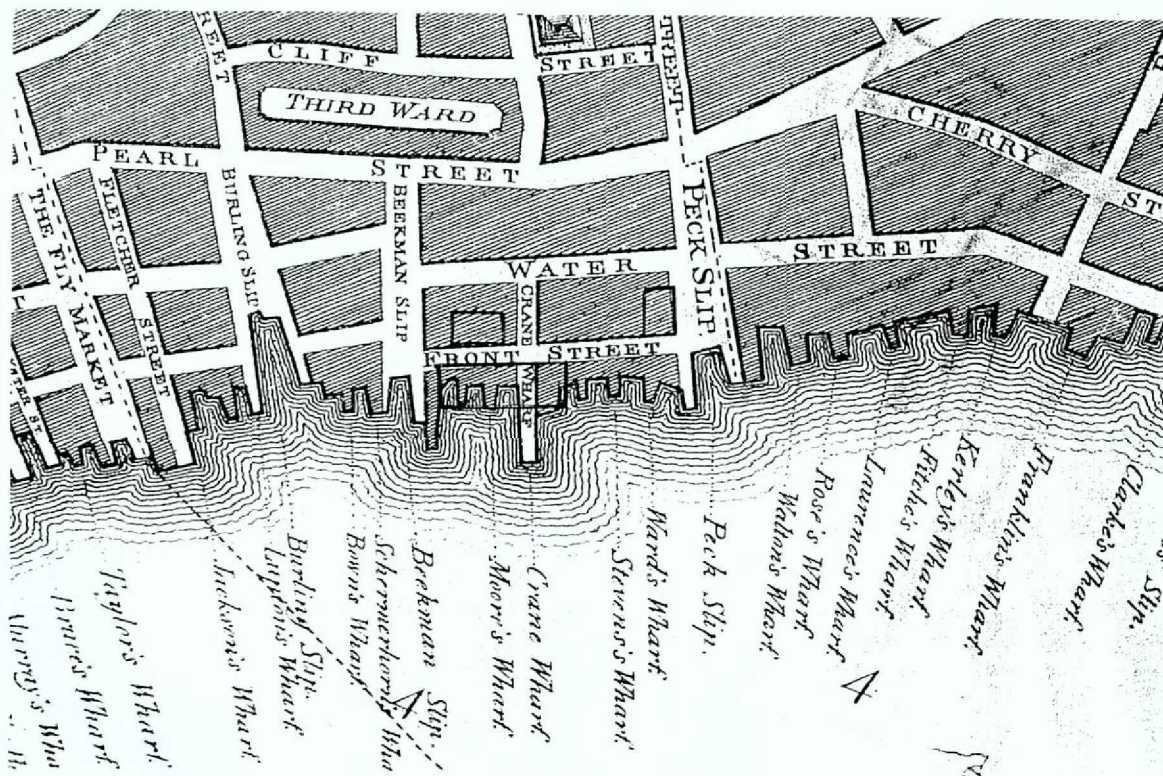 CLIFF STREET
THIRD WARD
STREET
STREET
PEARL STREET
CHERRY
ST
THE FLY MARKET
FLETCHER STREET
BURLING SLIP
BEEKMAN SLIP
PECK SLIP
WATER STREET
CRANE WHARF
FRONT STREET
Taylor's Wharf.
Jackson's Wharf.
Lupton's Wharf.
Burling Slip.
Bown's Wharf
Schermerhorn's Wha
Beekman Slip.
Moore's Wharf.
Crane Wharf
Stevens's Wharf.
Ward's Wharf.
Peck Slip.
Rose's Wharf.
Laurence's Wharf
Fitche's Wharf.
Kerley's Wharf
Franklin's Wharf.
Clarke's Wharf.
Slip.
4
4